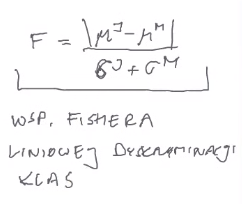 F = |μᴶ - μᴹ| / (σᴶ + σᴹ)
WSP. FISHERA
LINIOWEJ DYSKRAMINACJI
KLAS